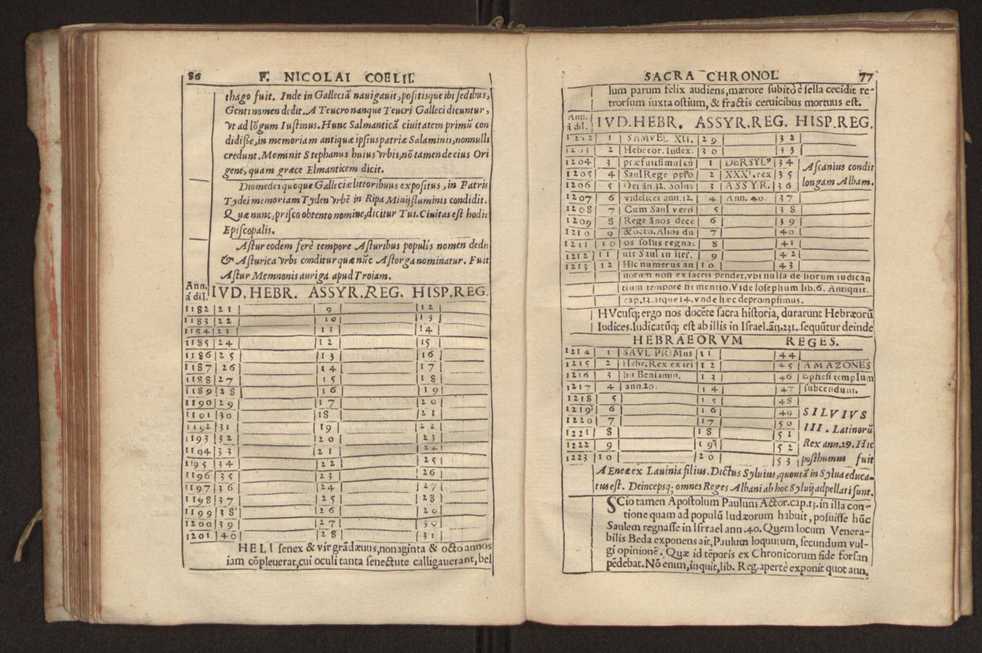 86 F. NICOLAI COELII.
thago fuit. Inde in Galleciā nauigauit, positisque ibi sedibus,
Genti nomen dedit. A Teucro nanque Teucri Galleci dicuntur,
vt ad lōgum Iustinus. Hunc Salmanticā ciuitatem primū con
didisse, in memoriam antiquæ ipsius patriæ Salaminis, nonnulli
credunt. Meminit Stephanus huius vrbis, nō tamen de eius Ori
gene, quam græce Elmanticem dicit.
Diomedes quoque Galleciæ littoribus expositus, in Patris
Tydei memoriam Tyden vrbē in Ripa Minij fluminis condidit.
Quæ nunc, prisco obtento nomine, dicitur Tui. Ciuitas est hodie
Episcopalis.
Astur eodem ferè tempore Asturibus populis nomen dedit
& Asturica vrbs conditur quæ nūc Astorga nominatur. Fuit
Astur Memnonis auriga apud Troiam.
Ann.
á dil. IVD. HEBR. ASSYR. REG. HISP. REG.
1182 21 9 12
1183 22 10 13
1184 23 11 14
1185 24 12 15
1186 25 13 16
1187 26 14 17
1188 27 15 18
1189 28 16 19
1190 29 17 20
1191 30 18 21
1192 31 19 22
1193 32 20 23
1194 33 21 24
1195 34 22 25
1196 35 23 26
1197 36 24 27
1198 37 25 28
1199 38 26 29
1200 39 27 30
1201 40 28 31
HELI senex & vir grādæuus, nonaginta & octo annos
iam cōpleuerat, cui oculi tanta senectute calligauerant, bel
SACRA CHRONOL 77
lum parum felix audiens, mærore subito è sella cecidit re-
trorsum iuxta ostium, & fractis ceruicibus mortuus est.
Ann.
á dil. IVD. HEBR. ASSYR. REG. HISP. REG.
1202 1 SAMVEL XII. 29 32
1203 2 Hebræor. Iudex. 30 33
1204 3 præfuit simul cū 1 DERSYLꝰ 34 Ascanius condit
1205 4 Saul Rege ppľo 2 XXXI. rex 35 longam Albam.
1206 5 Dei an. 32. Solus 3 ASSYR. 36
1207 6 videlicet ann. 12. 4 Ann. 40. 37
1208 7 Cum Saul verò 5 38
1209 8 Rege annos dece 6 39
1210 9 & octo. Alios du 7 40
1211 10 os solus regna- 8 41
1212 11 uit Saul in Isrť. 9 42
1213 12 Hic numerus an 10 43
norum non ex sacris pendet, vbi nulla de horum iudican
tium tempore fit mentio. Vide Iosephum lib. 6. Antiquit.
cap. 12. itque 14. vnde hæc deprompsimus.
HVcusq; ergo nos docēte sacra historia, durarunt Hebræorū
Iudices. Iudicatūq; est ab illis in Israel. añ. 331. sequūtur deinde
HEBRAEORVM REGES.
1214 1 SAVL PRIMus 11 44
1215 2 Hebr. Rex ex tri 12 45 AMAZONES
1216 3 bu Beniamin. 13 46 Ephesi templum
1217 4 ann. 20. 14 47 succendunt.
1218 5 15 48
1219 6 16 49 SILVIVS
1220 7 17 50 III. Latinorū
1221 8 18 51 Rex ann. 29. Hic
1222 9 19 52 posthumus fuit
1223 10 20 53
Aenea ex Lauinia filius. Dictus Syluius, quoniā in Sylua educa-
tus est. Deincepsq; omnes Reges Albani ab hoc Syluij adpellati sunt.
SCio tamen Apostolum Paulum Actor. cap. 13. in illa con-
tione quam ad populū Iudæorum habuit, posuisse hūc
Saulem regnasse in Israel ann. 40. Quem locum Venera-
bilis Beda exponens air, Paulum loquutum, secundum vul-
gi opinionē. Quæ id tēporis ex Chronicorum fide forsan
pēdebat. Nō enim, inquit, lib. Reg. apertè exponit quot ann.